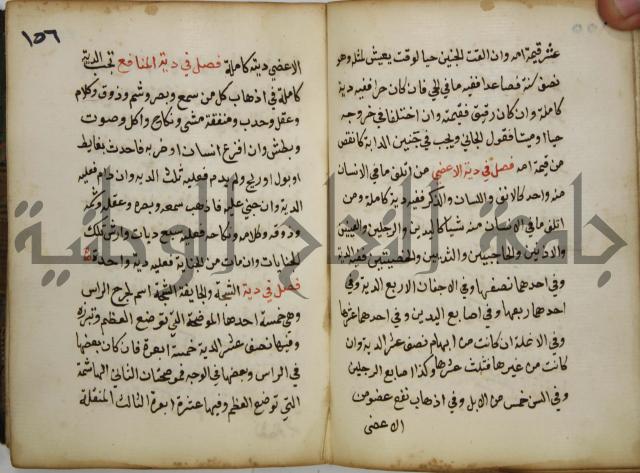 عشر قيمة امه وان القت الجنين حيا لوقت يعيش لمثله وهو
نصف سنة فصاعدا ففيه ما في الحي فان كان حرا ففيه دية
كاملة وان كان رقيق فقيمته وان اختلفا في خروجه
حيا او ميتا فقول الجاني ويجب في جنين الدابة كا نقص
من قيمة امه فصل في دية الاعضي من اتلف ما في الانسان
منه واحد كالانف واللسان والذكر ففيه دية كاملة ومن
اتلف ما في الانسان منه شيا كاليدين والرجلين والعينين
والاذنين والحاجبين والثديين والخصيتين ففيه الدية
وفي احدهما نصفها وفي الاجفان الاربع الدية وفي
احدهما ربعها وفي اصابع اليدين وفي احدهم عشرها
وفي الانملة ان كانت من ابهام نصف عشر الدية وان
كانت من غيرها فثلث عشرها وكذا اصابع الرجلين
وفي السن خمس من الابل وفي اذهاب نفع عضو من
الاعضى
١٥٦
الاعضي دية كاملة فصل في دية المنافع تجب الدية
كاملة في اذهاب كل من سمع وبصر وشم وذوق وكلام
وعقل وحدب ومنفعة مشي ونكاح واكل وصوت
وبطش وان افزع انسان او ضربه فاحدث بغايط
او بول او ريح ولم يدم فعليه ثلث الدية وان دام فعليه
الدية وان جنى عليه فاذهب سمعه وبصره وعقله وشمه
وذوقه وكلامه ونكاحه فعليه سبع ديات وارش تلك
الجنايات وان مات من الجناية فعليه دية واحدة
فصل في دية الشجة والجايفة الشجة اسم لجرح الراس
وهي خمسة احدها الموضحة التي توضح العظم وتبرزه
وفيها نصف عشر الدية خمسة ابعرة فان كان بعضها
في الراس وبعضها في الوجه فموضحتان الثاني الهاشمة
التي توضح العظم وفيها عشرة ابعرة الثالث المنقلة
جامعة النجاح الوطنية